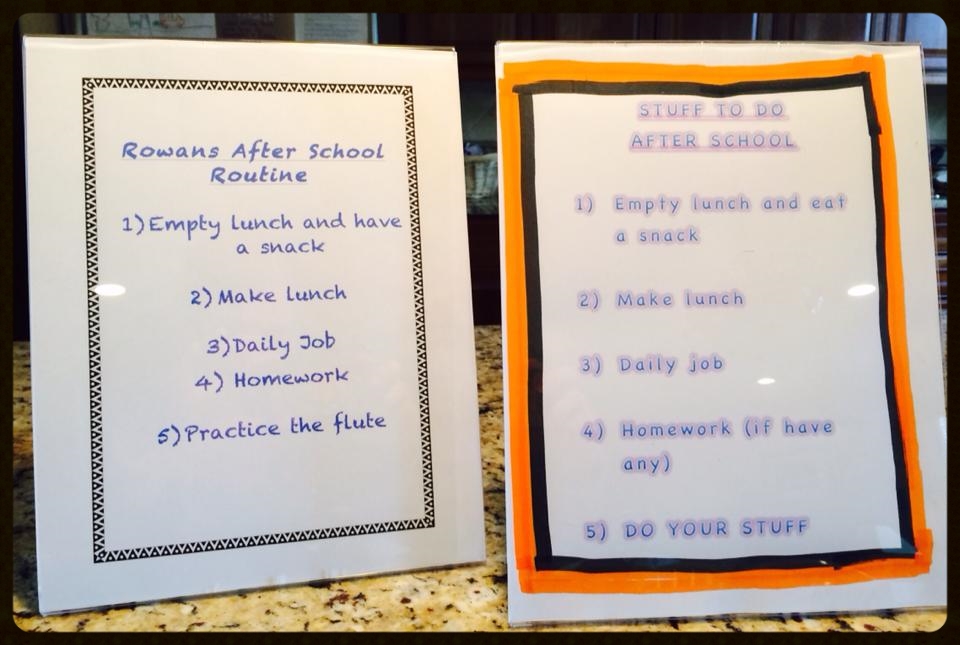 Rowans After School
Routine
1) Empty lunch and have
a snack
2) Make lunch
3) Daily Job
4) Homework
5) Practice the flute
STUFF TO DO
AFTER SCHOOL
1) Empty lunch and eat
a snack
2) Make lunch
3) Daily job
4) Homework (if have
any)
5) DO YOUR STUFF